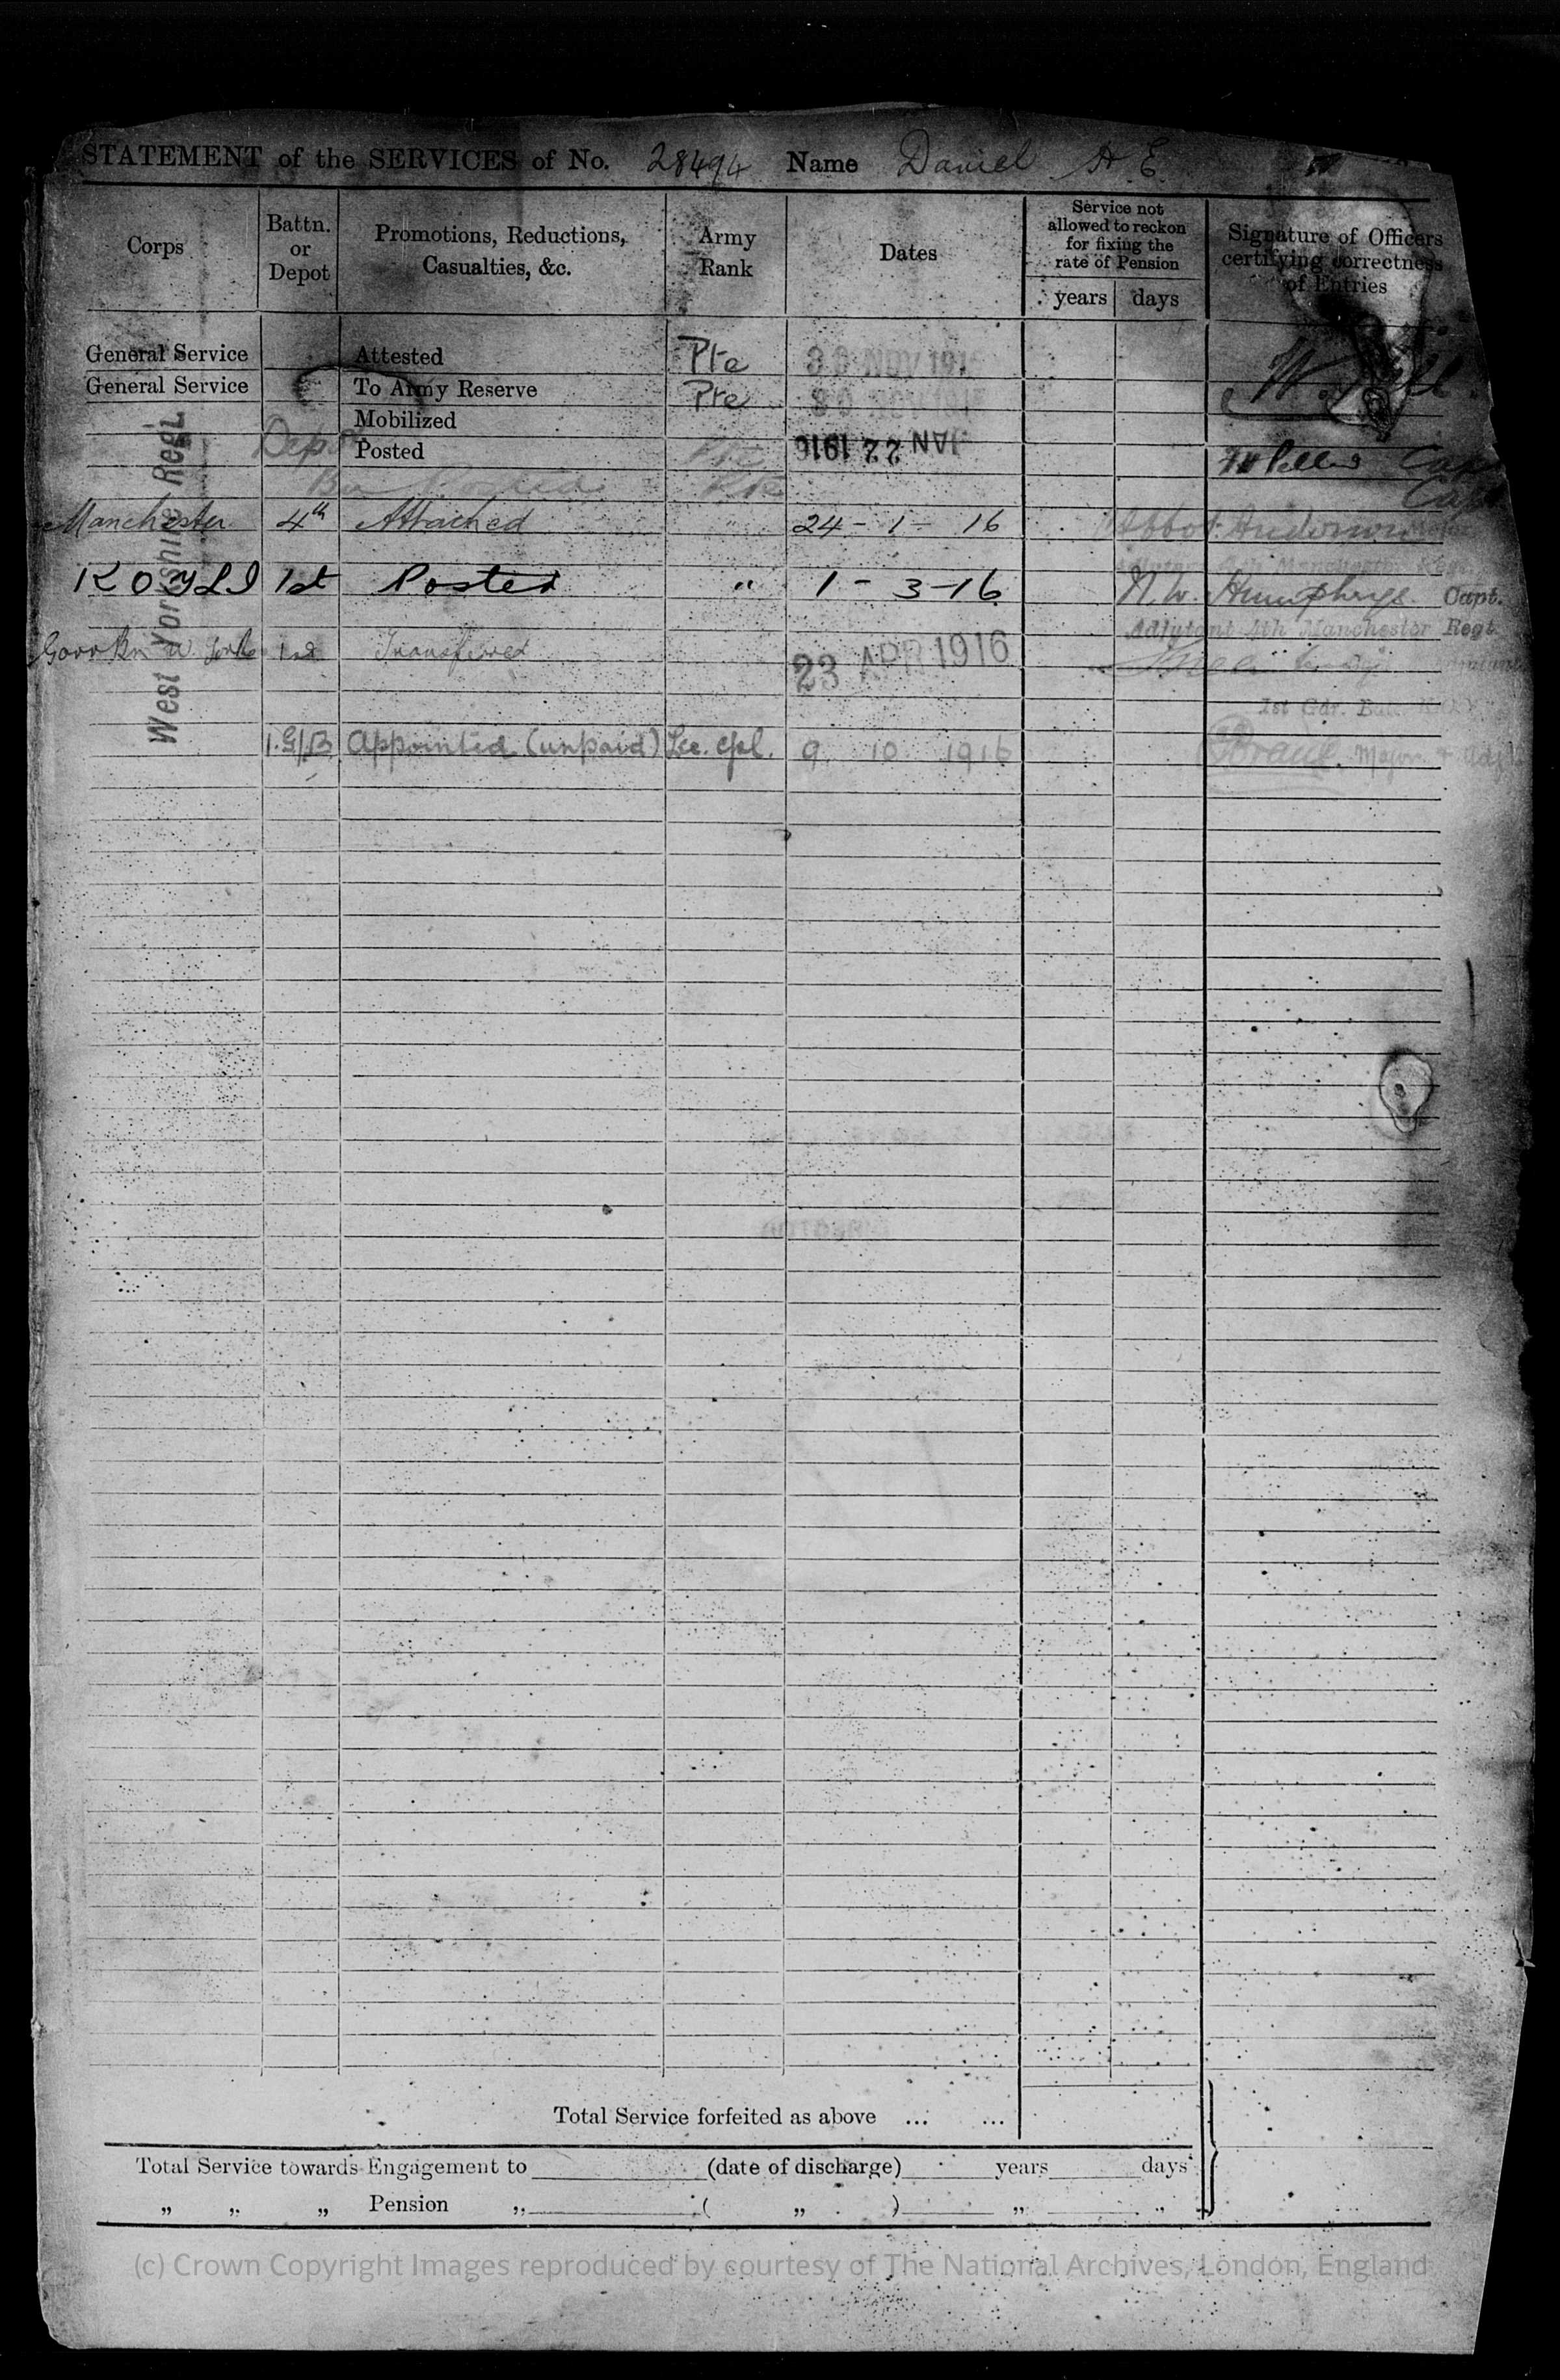 STATEMENT of the SERVICES of No. 28494 Name Daniel A E
Corps
Battn. or Depot
Promotions, Reductions, Casualties, &c.
Army Rank
Dates
Service not allowed to reckon for fixing the rate of Pension
years days
Signature of Officers certifying correctness of Entries
General Service Attested Pte 30 NOV 191
General Service To Army Reserve Pte
Mobilized
Depot Posted JAN 22 1916 Capt
Capt
West Yorkshire Regt.
Manchester 4th Attached " 24 - 1 - 16 Anderson Major
KOYLI 1st Posted " 1 - 3 - 16 N.W. Humphrys Capt.
Adjutant 4th Manchester Regt.
Garr Bn W. York 1st Transferred 23 APR 1916
1st Gar. Bn
1.G/B Appointed (unpaid) Lce. Cpl. 9 10 1916 Major & Adjt
Total Service forfeited as above ... ...
Total Service towards Engagement to (date of discharge) years days
„ „ „ Pension „ ( „ ) „ „
(c) Crown Copyright Images reproduced by courtesy of The National Archives, London, England